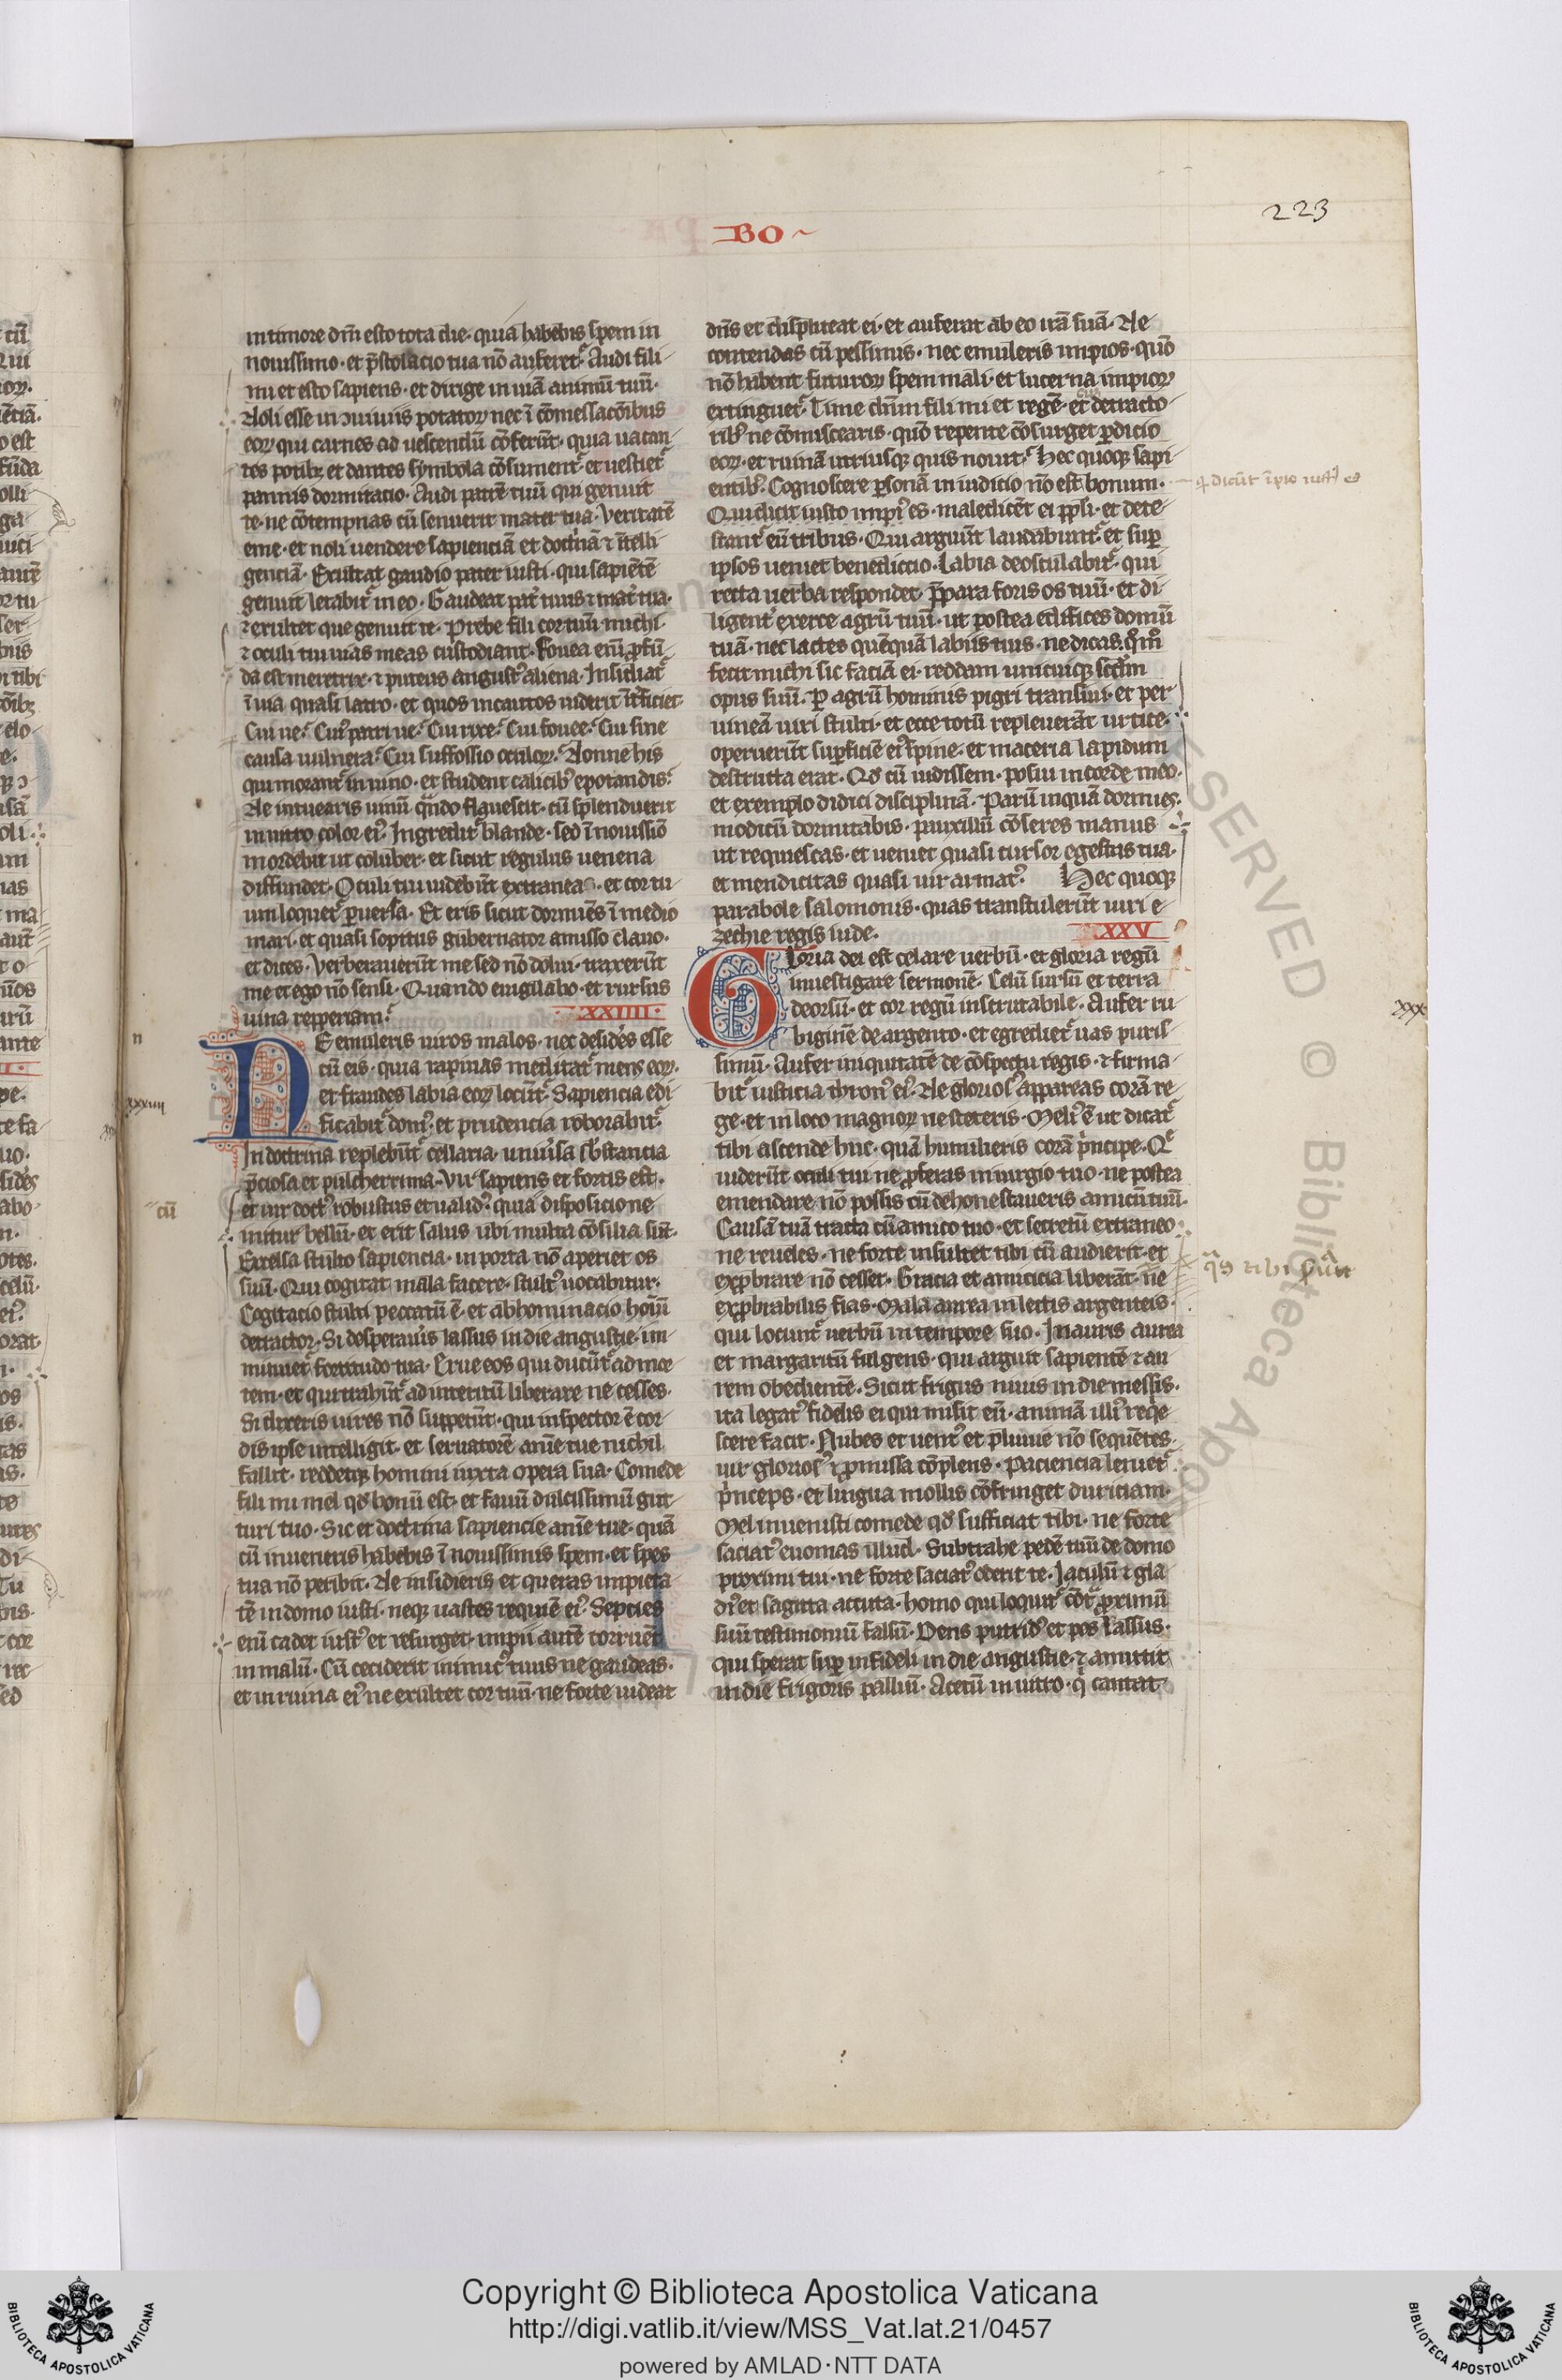 223
BO
in timore dñi esto tota die· quia habebis spem in
nouissimo· et p̄stolacio tua nō auferet᷑· Audi fili
mi et esto sapiens· et dirige in uiā animū tuū·
Noli esse in ↄuiuiis potatoꝝ nec ī cōmessacōibus
eoꝝ qui carnes ad uescendū cōferūt· quia uacan
tes potibꝫ et dantes symbola cōsument᷑· et uestiet᷑
pannis dormitacio· Audi patrē tuū qui genuit
te· ne cōtempnas cū senuerit mater tua· Veritatē
eme· et noli uendere sapienciā et doct̾nā ⁊ ītelli
genciā· Exultat gaudio pater iusti· qui sapiētē
genuit letabit᷑ in eo· Gaudeat pat̾ tuus ⁊ mat̾ tua·
⁊ exultet que genuit te· Prebe fili cor tuū michi·
⁊ oculi tui uias meas custodiant· Fouea enī ꝓfū
da est meretrix· ⁊ puteus angustꝰ aliena· Insidiat᷑
ī uia quasi latro· et quos incautos uiderit īt̾ficiet·
Cui ue? Cuiꝰ patri ue? Cui rixe? Cui fouee? Cui sine
causa uulnera? Cui suffossio oculoꝝ? Nonne his
qui morant᷑ in uino· et student calicibꝰ epotandis?
Ne intuearis uinū quādo flauescit· cū splenduerit
in uitro color eiꝰ· Ingredit᷑ blande· sed ī nouissīo
mordebit ut coluber· et sicut regulus uenena
diffundet· Oculi tui uidebūt extraneas· et cor tu
um loquet᷑ ꝑuersa· Et eris sicut dormiēs ī medio
mari· et quasi sopitus gubernator amisso clauo·
et dices· Verberauerūt me sed nō dolui· traxerūt
me et ego nō sensi· Quando euigilabo· et rursus
uina repperiam?
XXIIII·
NE emuleris uiros malos· nec desideres esse
cū eis· quia rapinas meditat᷑ mens eoꝝ·
et fraudes labia eoꝝ locūt᷑· Sapiencia edi
ficabit᷑ domꝰ· et prudencia roborabit᷑·
In doctrina replebūt᷑ cellaria· uniu̾sa sb̄stancia
p̄ciosa et pulcherrima· Vir sapiens et fortis est·
et uir doctꝰ robustus et ualidꝰ· quia disposicione
initur bellū· et erit salus ubi multa cōsilia sūt·
Excelsa stulto sapiencia· in porta nō aperiet os
suū· Qui cogitat mala facere· stultꝰ uocabitur·
Cogitacio stulti peccatū ē· et abhominacio hoīū
detractor· Si desperauīs lassus in die angustie· im
minuet᷑ fortitudo tua· Erue eos qui ducūt᷑ ad mor
tem· et qui trahūt᷑ ad interitū liberare ne cesses·
Si dixeris uires nō suppetūt· qui inspector ē cor
dis ipse intelligit· et seruatorē anīe tue nichil
fallit· reddetqꝫ homini iuxta opera sua· Comede
fili mi mel qd̾ bonū est· et fauū dulcissimū gut
turi tuo· Sic et doctrina sapiencie anīe tue· quā
cū inueneris habebis ī nouissimis spem· et spes
tua nō peribit· Ne insidieris et queras impieta
tē in domo iusti· neqꝫ uastes requiē eiꝰ· Septies
enī cadet iustꝰ et resurget· impii autē corruēt
in malū· Cū ceciderit inimicꝰ tuus ne gaudeas·
et in ruina eiꝰ ne exultet cor tuū· ne forte uideat
dn̄s et displiceat ei· et auferat ab eo irā suā· Ne
contendas cū pessimis· nec emuleris impios· quō
nō habent futuroꝝ spem mali· et lucerna impioꝝ
extinguet᷑· Time dn̄m fili mi et regē· et detracto
ribꝰ ne cōmiscearis· quō repente cōsurget ꝑdicio
eoꝝ· et ruinā utriusqꝫ quis nouit? Hec quoqꝫ sapi
entibꝰ· Cognoscere ꝑsonā in iudicio nō est bonum·
Qui dicit iusto impiꝰ es· maledicēt ei pp̄li· et dete
stant᷑ eū tribus· Qui arguūt laudabunt᷑· et suꝑ
ipsos ueniet benediccio· Labia deosculabit᷑· qui
recta uerba respondet· p̄para foris os tuū· et di
ligent̾ exerce agrū tuū· ut postea edifices domū
tuā· nec lactes quēquā labiis tuis· ne dicas· qm̄
fecit michi sic faciā ei· reddam unicuiqꝫ scd̄m
opus suū· Per agrū hominis pigri transiui· et per
uineā uiri stulti· et ecce totū repleuerāt urtice·
operuerūt suꝑficiē eiꝰ spine· et maceria lapidum
destructa erat· Qd̾ cū uidissem· posui in corde meo·
et exemplo didici disciplinā· Parū inquā dormies·
modicū dormitabis· pauxillū cōseres manus
ut requiescas· et ueniet quasi cursor egestas tua·
et mendicitas quasi uir armatꝰ· Hec quoqꝫ
parabole salomonis· quas transtulerūt uiri e
zechie regis iude·
XXV
GLoria dei est celare uerbū· et gloria regū
inuestigare sermonē· Celū sursū et terra
deorsū· et cor regū inscrutabile· Aufer ru
biginē de argento· et egrediet᷑ uas puris
simū· Aufer iniquitatē de cōspectu regis· ⁊ firma
bit᷑ iusticia thronꝰ eiꝰ· Ne gloriosꝰ appareas corā re
ge· et in loco magnoꝝ ne steteris· Meliꝰ ē ut dicat᷑
tibi ascende huc· quā humilieris corā p̾ncipe· Que
uiderūt oculi tui ne ꝓferas in iurgio tuo· ne postea
emendare nō possis cū dehonestaueris amicū tuū·
Causā tuā tracta cū amico tuo· et secretū extraneo
ne reueles· ne forte insultet tibi cū audierit· et
exꝓbrare nō cesset· Gracia et amicicia liberāt· ne
exꝓbrabilis fias· Mala aurea in lectis argenteis·
qui locunt᷑ uerbū in tempore suo· Inauris aurea
et margaritū fulgens· qui arguit sapientē ⁊ au
rem obedientē· Sicut frigus niuis in die messis·
ita legatꝰ fidelis ei qui misit eū· animā illiꝰ reqi̾e
scere facit· Nubes et uentꝰ et pluuie nō sequētes·
uir gloriosꝰ ⁊ ꝓmissa cōplens· Paciencia leniet᷑
p̾nceps· et lingua mollis cōfringet duriciam·
Mel inuenisti comede qd̾ sufficiat tibi· ne forte
saciatꝰ euomas illud· Subtrahe pedē tuū de domo
proximi tui· ne forte saciatꝰ oderit te· Iaculū ⁊ gla
diꝰ et sagitta accuta· homo qui loquit᷑ cōt̾ ꝓximū
suū testimoniū falsū· Dens putridꝰ et pes lassus·
qui sperat suꝑ infideli in die angustie· ⁊ amittit
in die frigoris palliū· Acetū in uitro· q̾ cantat
n
xxxiiii
cū
xxx
Copyright © Biblioteca Apostolica Vaticana
http://digi.vatlib.it/view/MSS_Vat.lat.21/0457
powered by AMLAD·NTT DATA
BIBLIOTECA APOSTOLICA VATICANA
BIBLIOTECA APOSTOLICA VATICANA